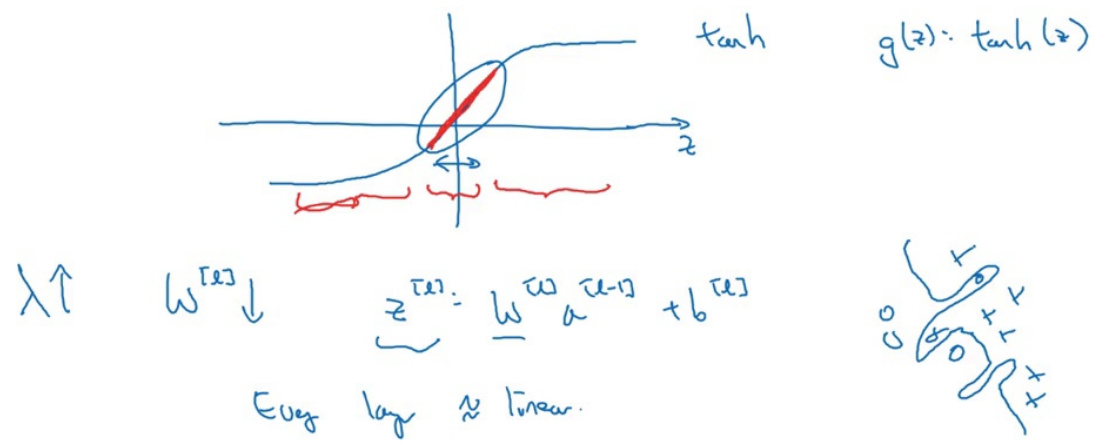 tanh g(z) = tanh(z)
z
λ↑ W^[l]↓ z^[l] = W^[l] a^[l-1] + b^[l]
Every layer ≈ linear.